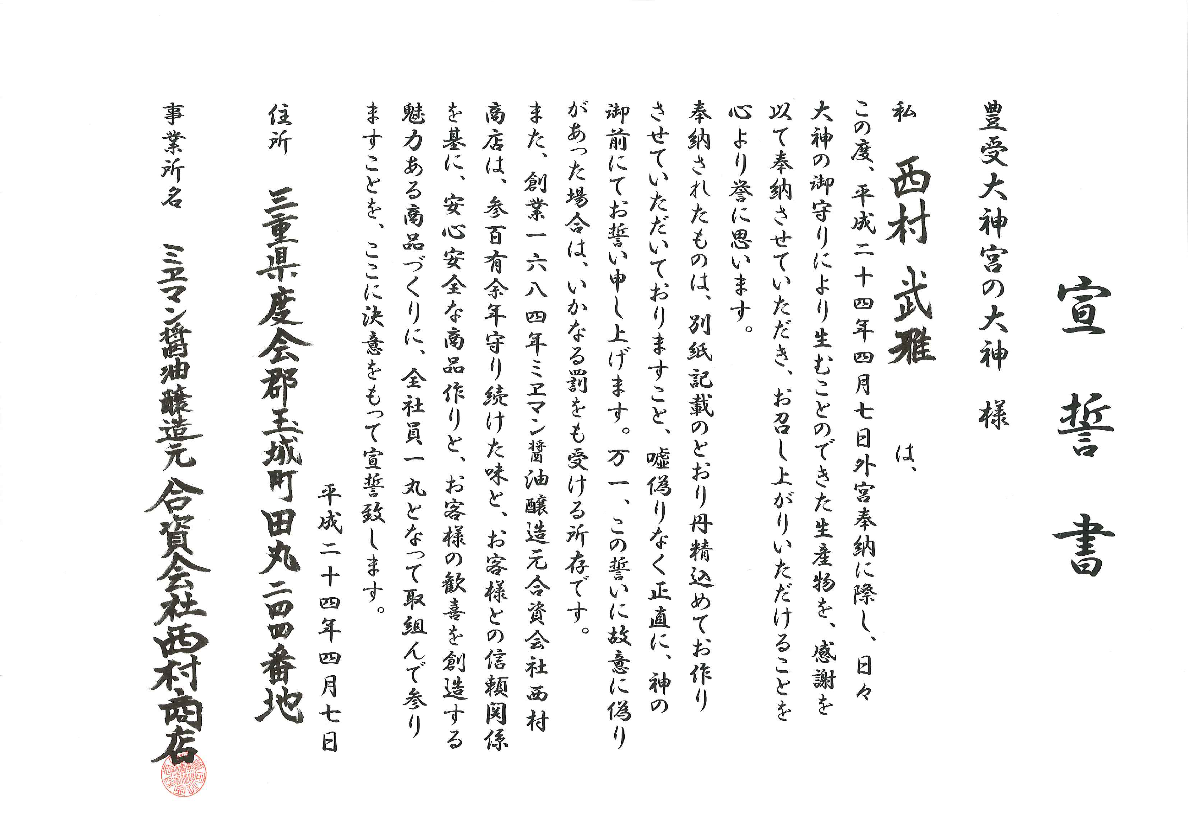 宣誓書
豊受大神宮の大神 様
私 西村 武雅 は、
この度、平成二十四年四月七日外宮奉納に際し、日々
大神の御守りにより生むことのできた生産物を、感謝を
以て奉納させていただき、お召し上がりいただけることを
心より誉に思います。
奉納されたものは、別紙記載のとおり丹精込めてお作り
させていただいておりますこと、嘘偽りなく正直に、神の
御前にてお誓い申し上げます。万一、この誓いに故意に偽り
があった場合は、いかなる罰をも受ける所存です。
また、創業一六八四年ミヱマン醤油醸造元合資会社西村
商店は、参百有余年守り続けた味と、お客様との信頼関係
を基に、安心安全な商品作りと、お客様の歓喜を創造する
魅力ある商品づくりに、全社員一丸となって取組んで参り
ますことを、ここに決意をもって宣誓致します。
平成二十四年四月七日
住所 三重県度会郡玉城町田丸二四四番地
事業所名 ミヱマン醤油醸造元 合資会社西村商店